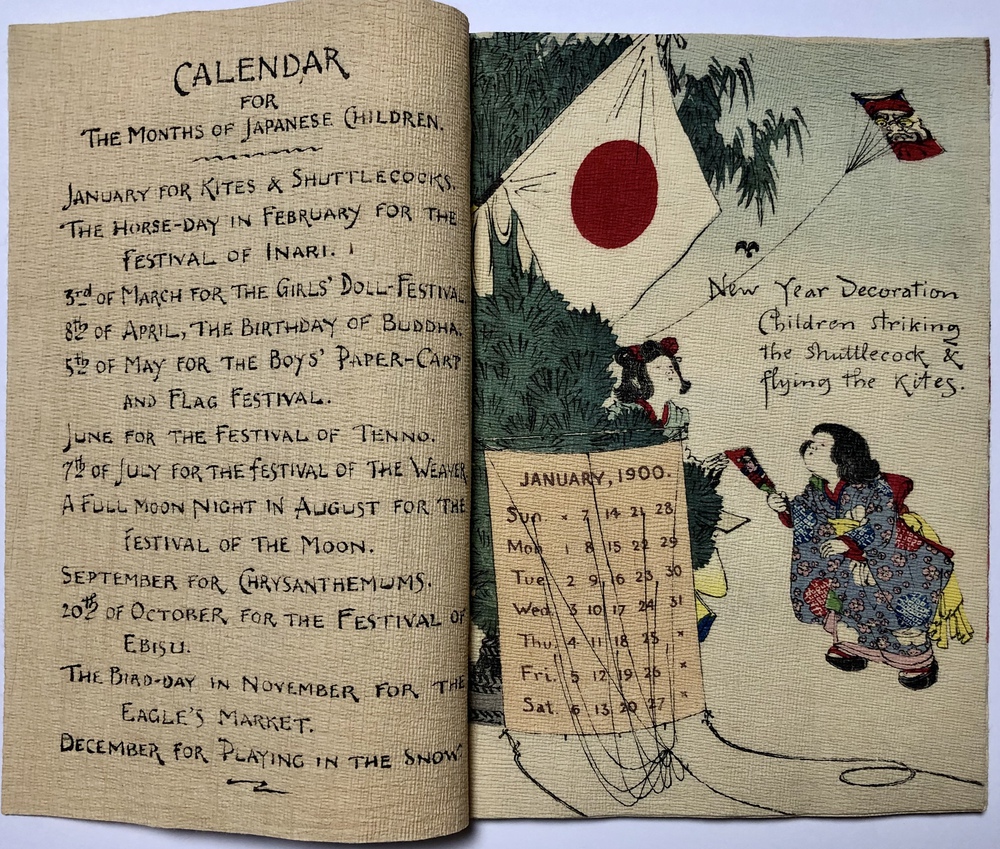 CALENDAR
FOR
THE MONTHS OF JAPANESE CHILDREN.
JANUARY FOR KITES & SHUTTLECOCKS.
THE HORSE-DAY IN FEBRUARY FOR THE
FESTIVAL OF INARI.
3rd OF MARCH FOR THE GIRLS' DOLL-FESTIVAL.
8th OF APRIL, THE BIRTHDAY OF BUDDHA.
5th OF MAY FOR THE BOYS' PAPER-CARP
AND FLAG FESTIVAL.
JUNE FOR THE FESTIVAL OF TENNO.
7th OF JULY FOR THE FESTIVAL OF THE WEAVER
A FULL MOON NIGHT IN AUGUST FOR THE
FESTIVAL OF THE MOON.
SEPTEMBER FOR CHRYSANTHEMUMS.
20th OF OCTOBER FOR THE FESTIVAL OF
EBISU.
THE BIRD-DAY IN NOVEMBER FOR THE
EAGLE'S MARKET.
DECEMBER FOR PLAYING IN THE SNOW
New Year Decoration
Children striking
the shuttlecock &
flying the kites.
JANUARY, 1900.
Sun. × 7 14 21 28
Mon 1 8 15 22 29
Tue 2 9 16 23 30
Wed. 3 10 17 24 31
Thu 4 11 18 25 ×
Fri. 5 12 19 26 ×
Sat. 6 13 20 27 ×